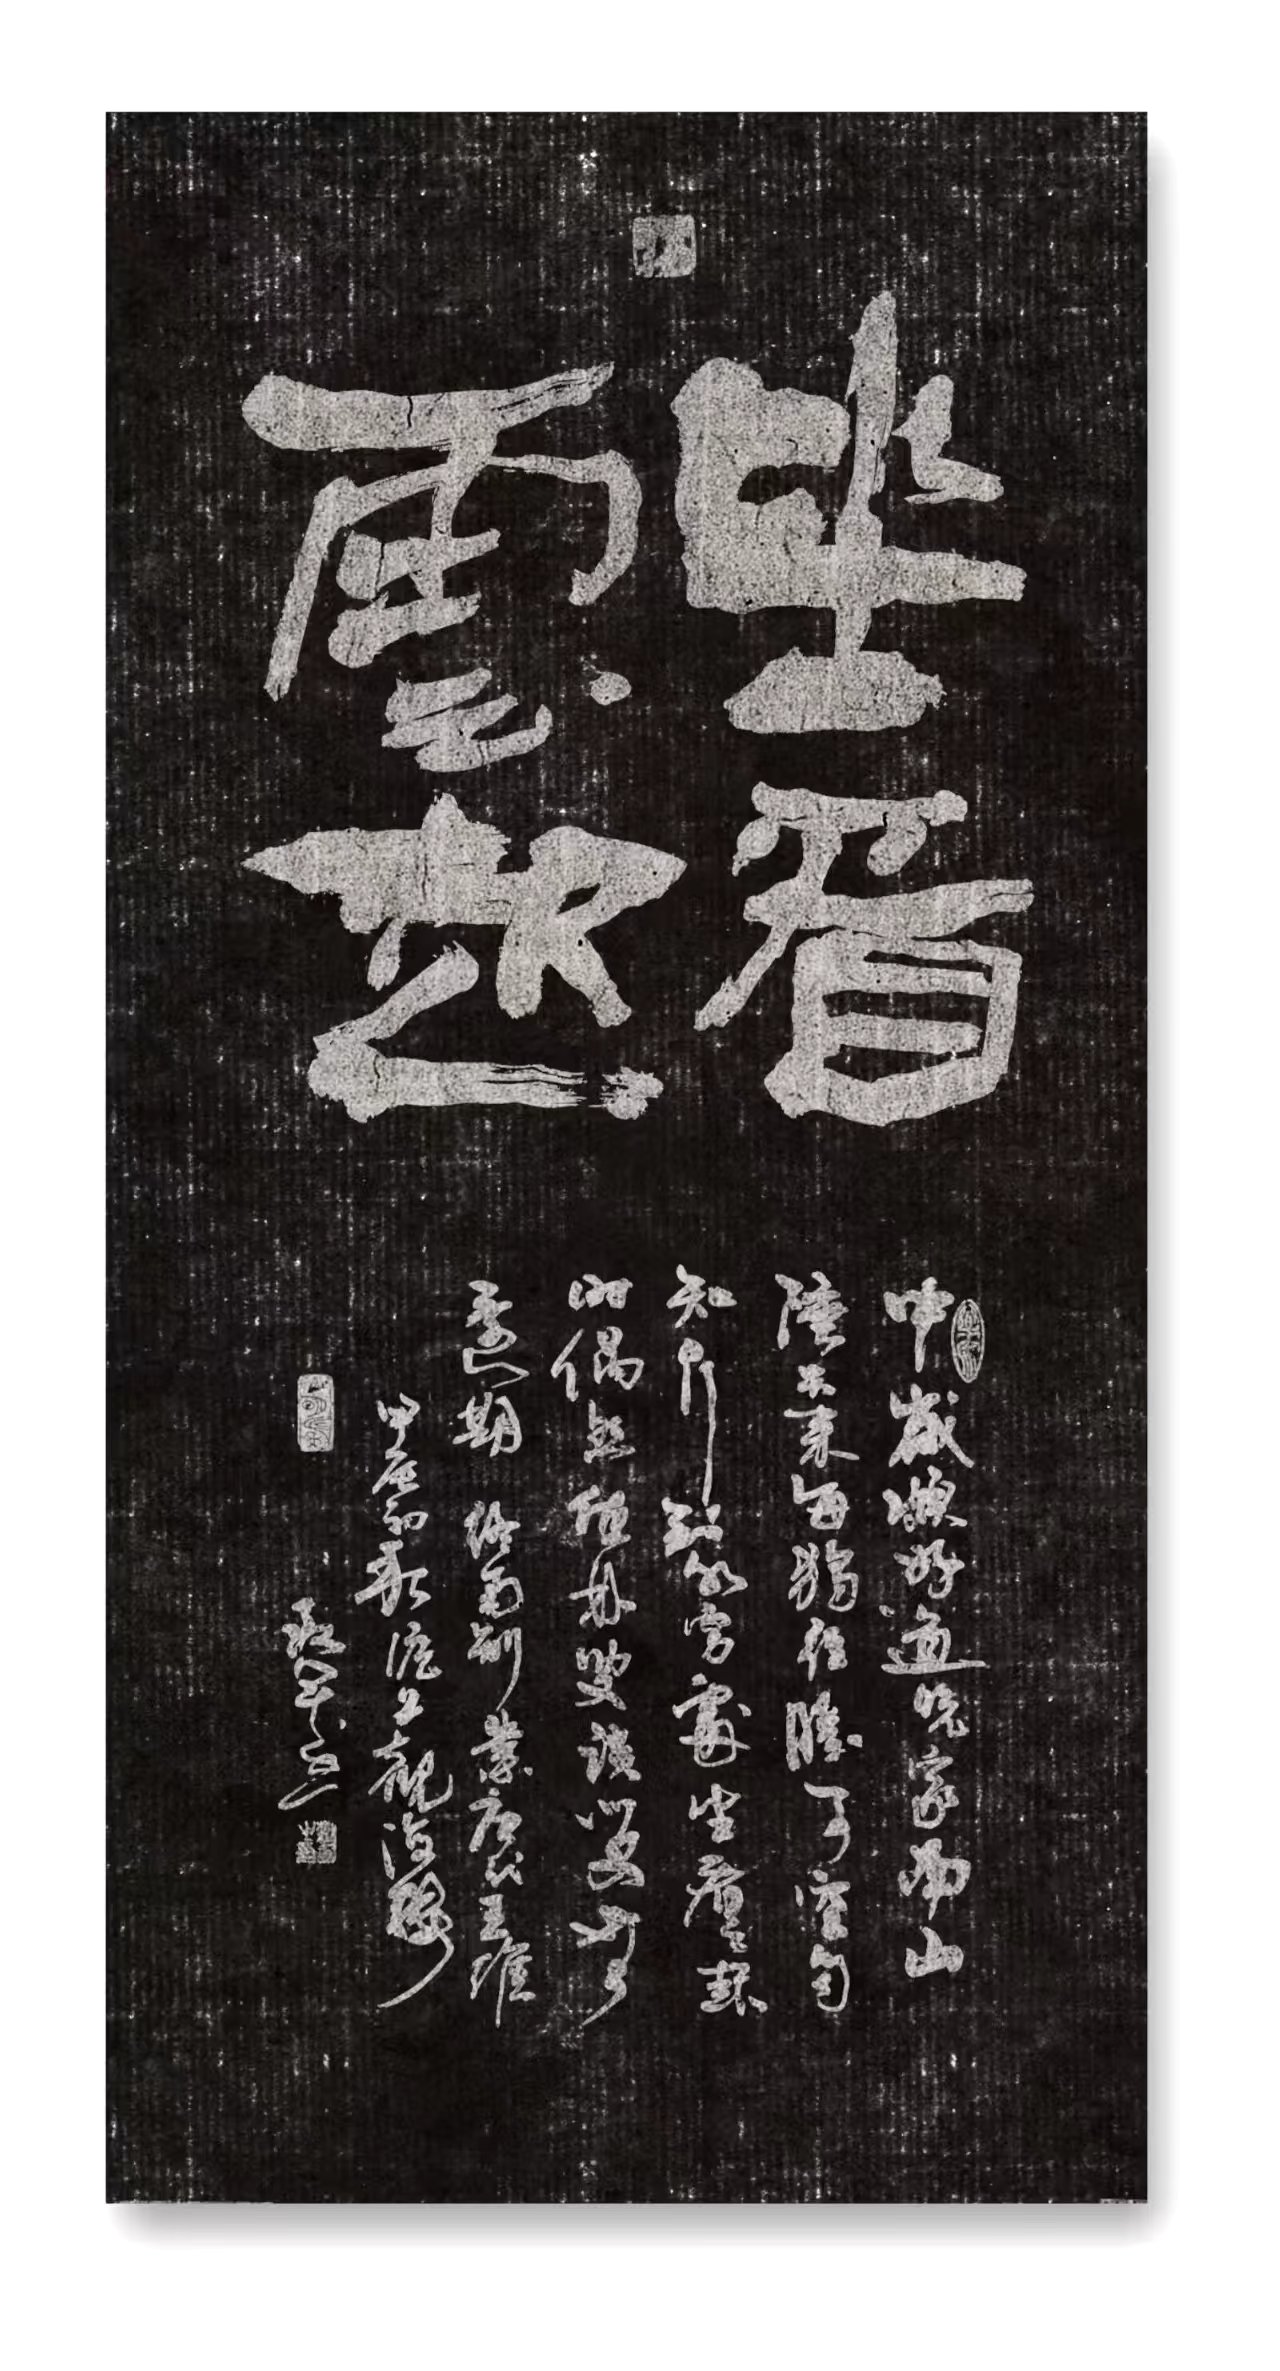 坐看
雲起
中歲頗好道晚家南山
陲興来每獨往勝事空自
知行到水窮處坐看雲起
時偶然值林叟談笑無
還期 終南別業 唐代王維
甲辰秋滬上觀海樓